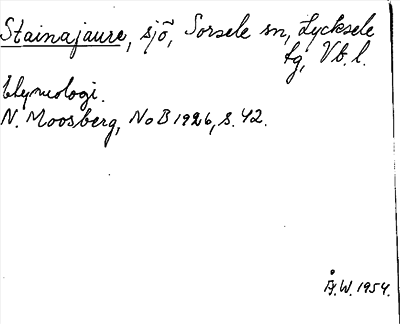 Stainajaure, sjö, Sorsele sn, Lycksele
tg, Vb. l.
Etymologi.
N. Moosberg, NoB 1926, s. 42.
Å.W. 1954.